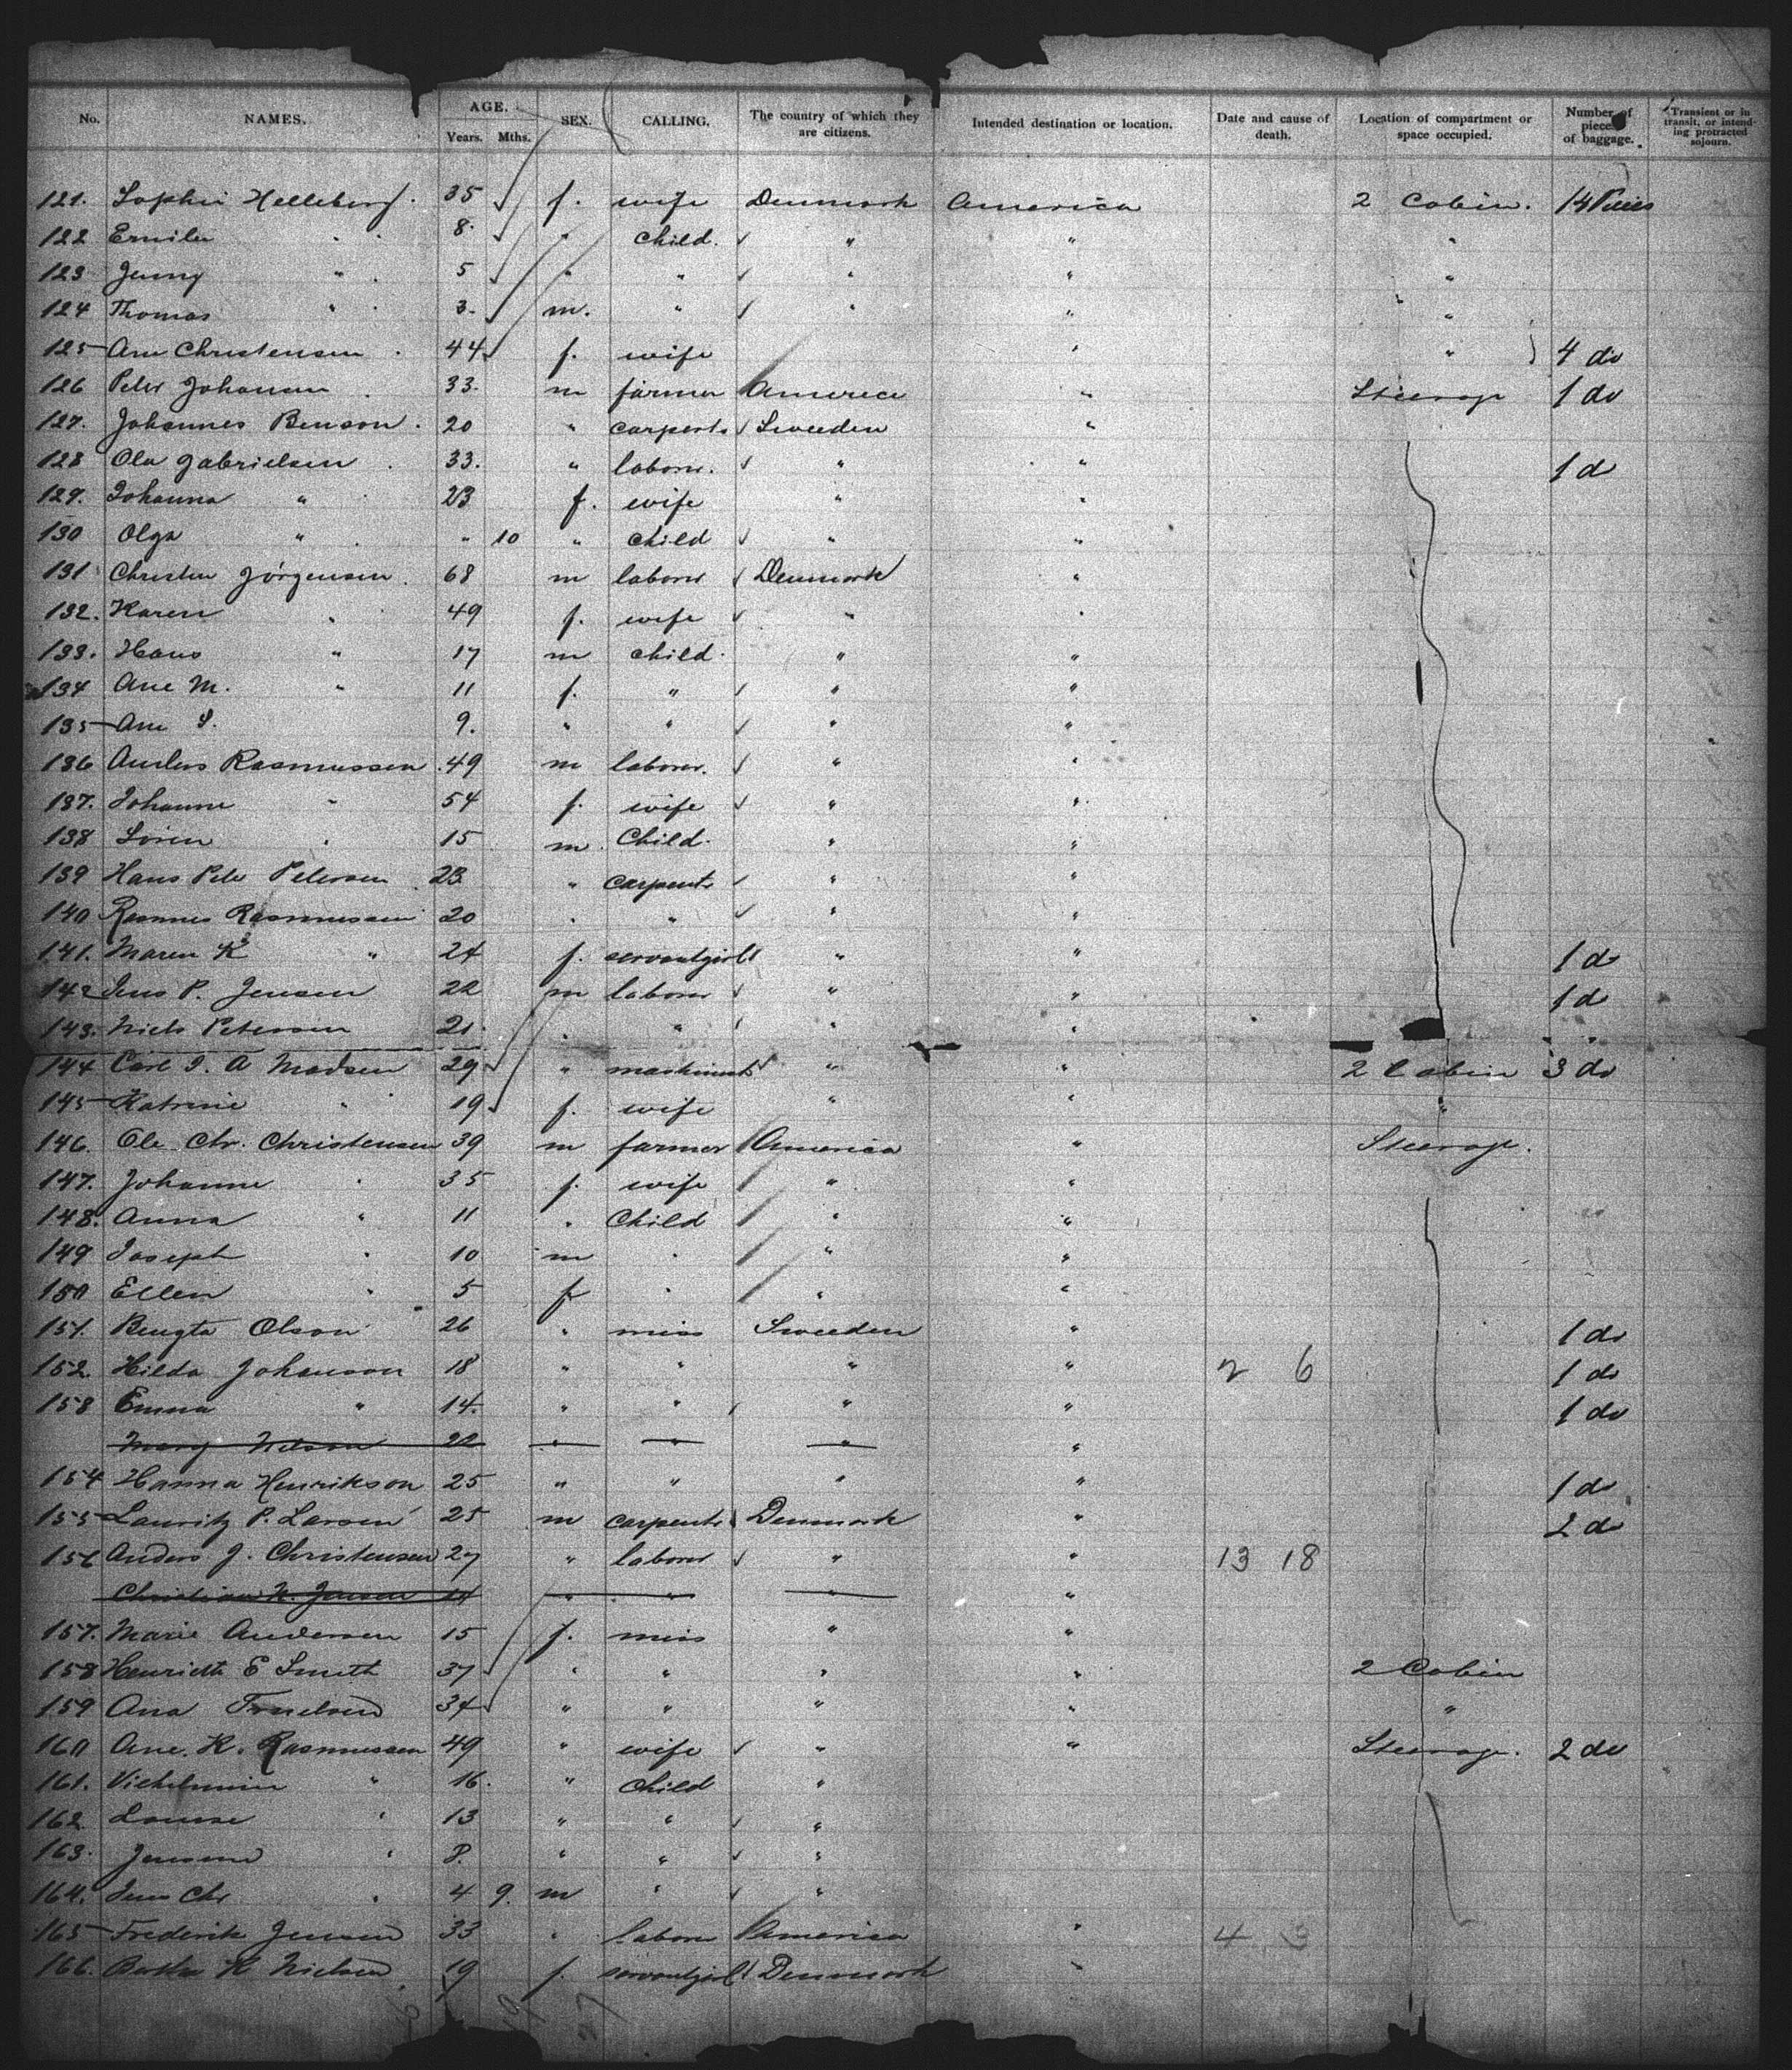 No. NAMES. AGE. Years. Mths. SEX. CALLING. The country of which they are citizens. Intended destination or location. Date and cause of death. Location of compartment or space occupied. Number of pieces of baggage. Transient or in transit, or intending protracted sojourn.
121. Sophie Helleberg. 35 f. wife Denmark America 2 Cabin. 14
122 8. " child. " " "
123 Jenny " 5 " " " " "
124 Thomas " 3. m. " " " "
125 Ane Christensen 44 f. wife " " 4 do
126 Peter Johansen 33. m farmer America " Steerage 1 do
127. Johannes Benson. 20 " carpent. Sweeden "
128 Ola Gabrielsen 33. " labor. " " 1 d
129. Johanna " 23 f. wife " "
130 Olga " " 10 " child " "
131 Christen Jörgensen. 68 m labor Denmark "
132. Karen " 49 f. wife " "
133. Hans " 17 m child. " "
134 Ane M. " 11 f. " " "
135 Ane S. 9. " " " "
136 Anders Rasmussen 49 m labor. " "
137. Johanne " 54 f. wife " "
138 Sören " 15 m. Child. " "
139 Hans Peter Petersen 23 " carpent. " "
140 Rasmus Rasmussen 20 " " " "
141. Maren K " 24 f. servantgirl " " 1 do
142 Jens P. Jensen 22 m labor " " 1 do
143. Niels Petersen 21. " " " "
144 Carl J. A Madsen 29 " " " 2 Cabin 3 do
145 Katrine " 19 f. wife " " "
146. Ole Chr. Christensen 39 m farmer America " Steerage.
147. Johanne " 35 f. wife " "
148. Anna " 11 " Child " "
149 Joseph " 10 m " " "
150 Ellen " 5 f " " "
151. Bengta Olson 26 " miss Sweeden " 1 do
152. Hilda Johanson 18 " " " " 2 6 1 do
153 Emma " 14. " " " " 1 do
Mary Nilson 22 " " " "
154 Hanna Henrikson 25 " " " " 1 do
155 Lauritz P. Larsen 25 m carpent. Denmark " 2 do
156 Anders J. Christensen 27 " labor " " 13 18
Christian N. Jensen " " " "
157. Marie Andersen 15 f. miss " "
158 Henriette E Smith 37 " " " " 2 Cabin
159 Ana 34 " " " " "
160 Ane. K. Rasmussen 49 " wife " " Steerage. 2 do
161. " 16. " child "
162. Louise " 13 " " "
163. " 8. " " "
164. Jens Chr " 4 9. m " "
165 Frederik Jensen 33 " labor America " 4 3
166. K Nielsen 19 f. servantgirl Denmark "